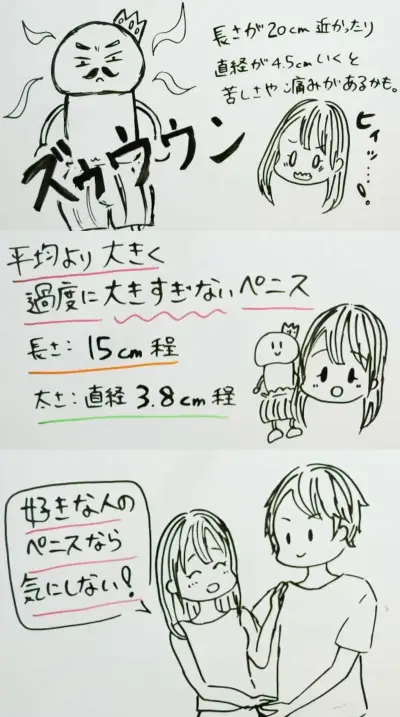 長さが20cm近かったり
直径が4.5cmいくと
苦しさや痛みがあるかも。
ズゥウウン
ヒィッ…!
平均より大きく
過度に大きすぎないペニス
長さ:15cm程
太さ:直径3.8cm程
好きな人の
ペニスなら
気にしない!